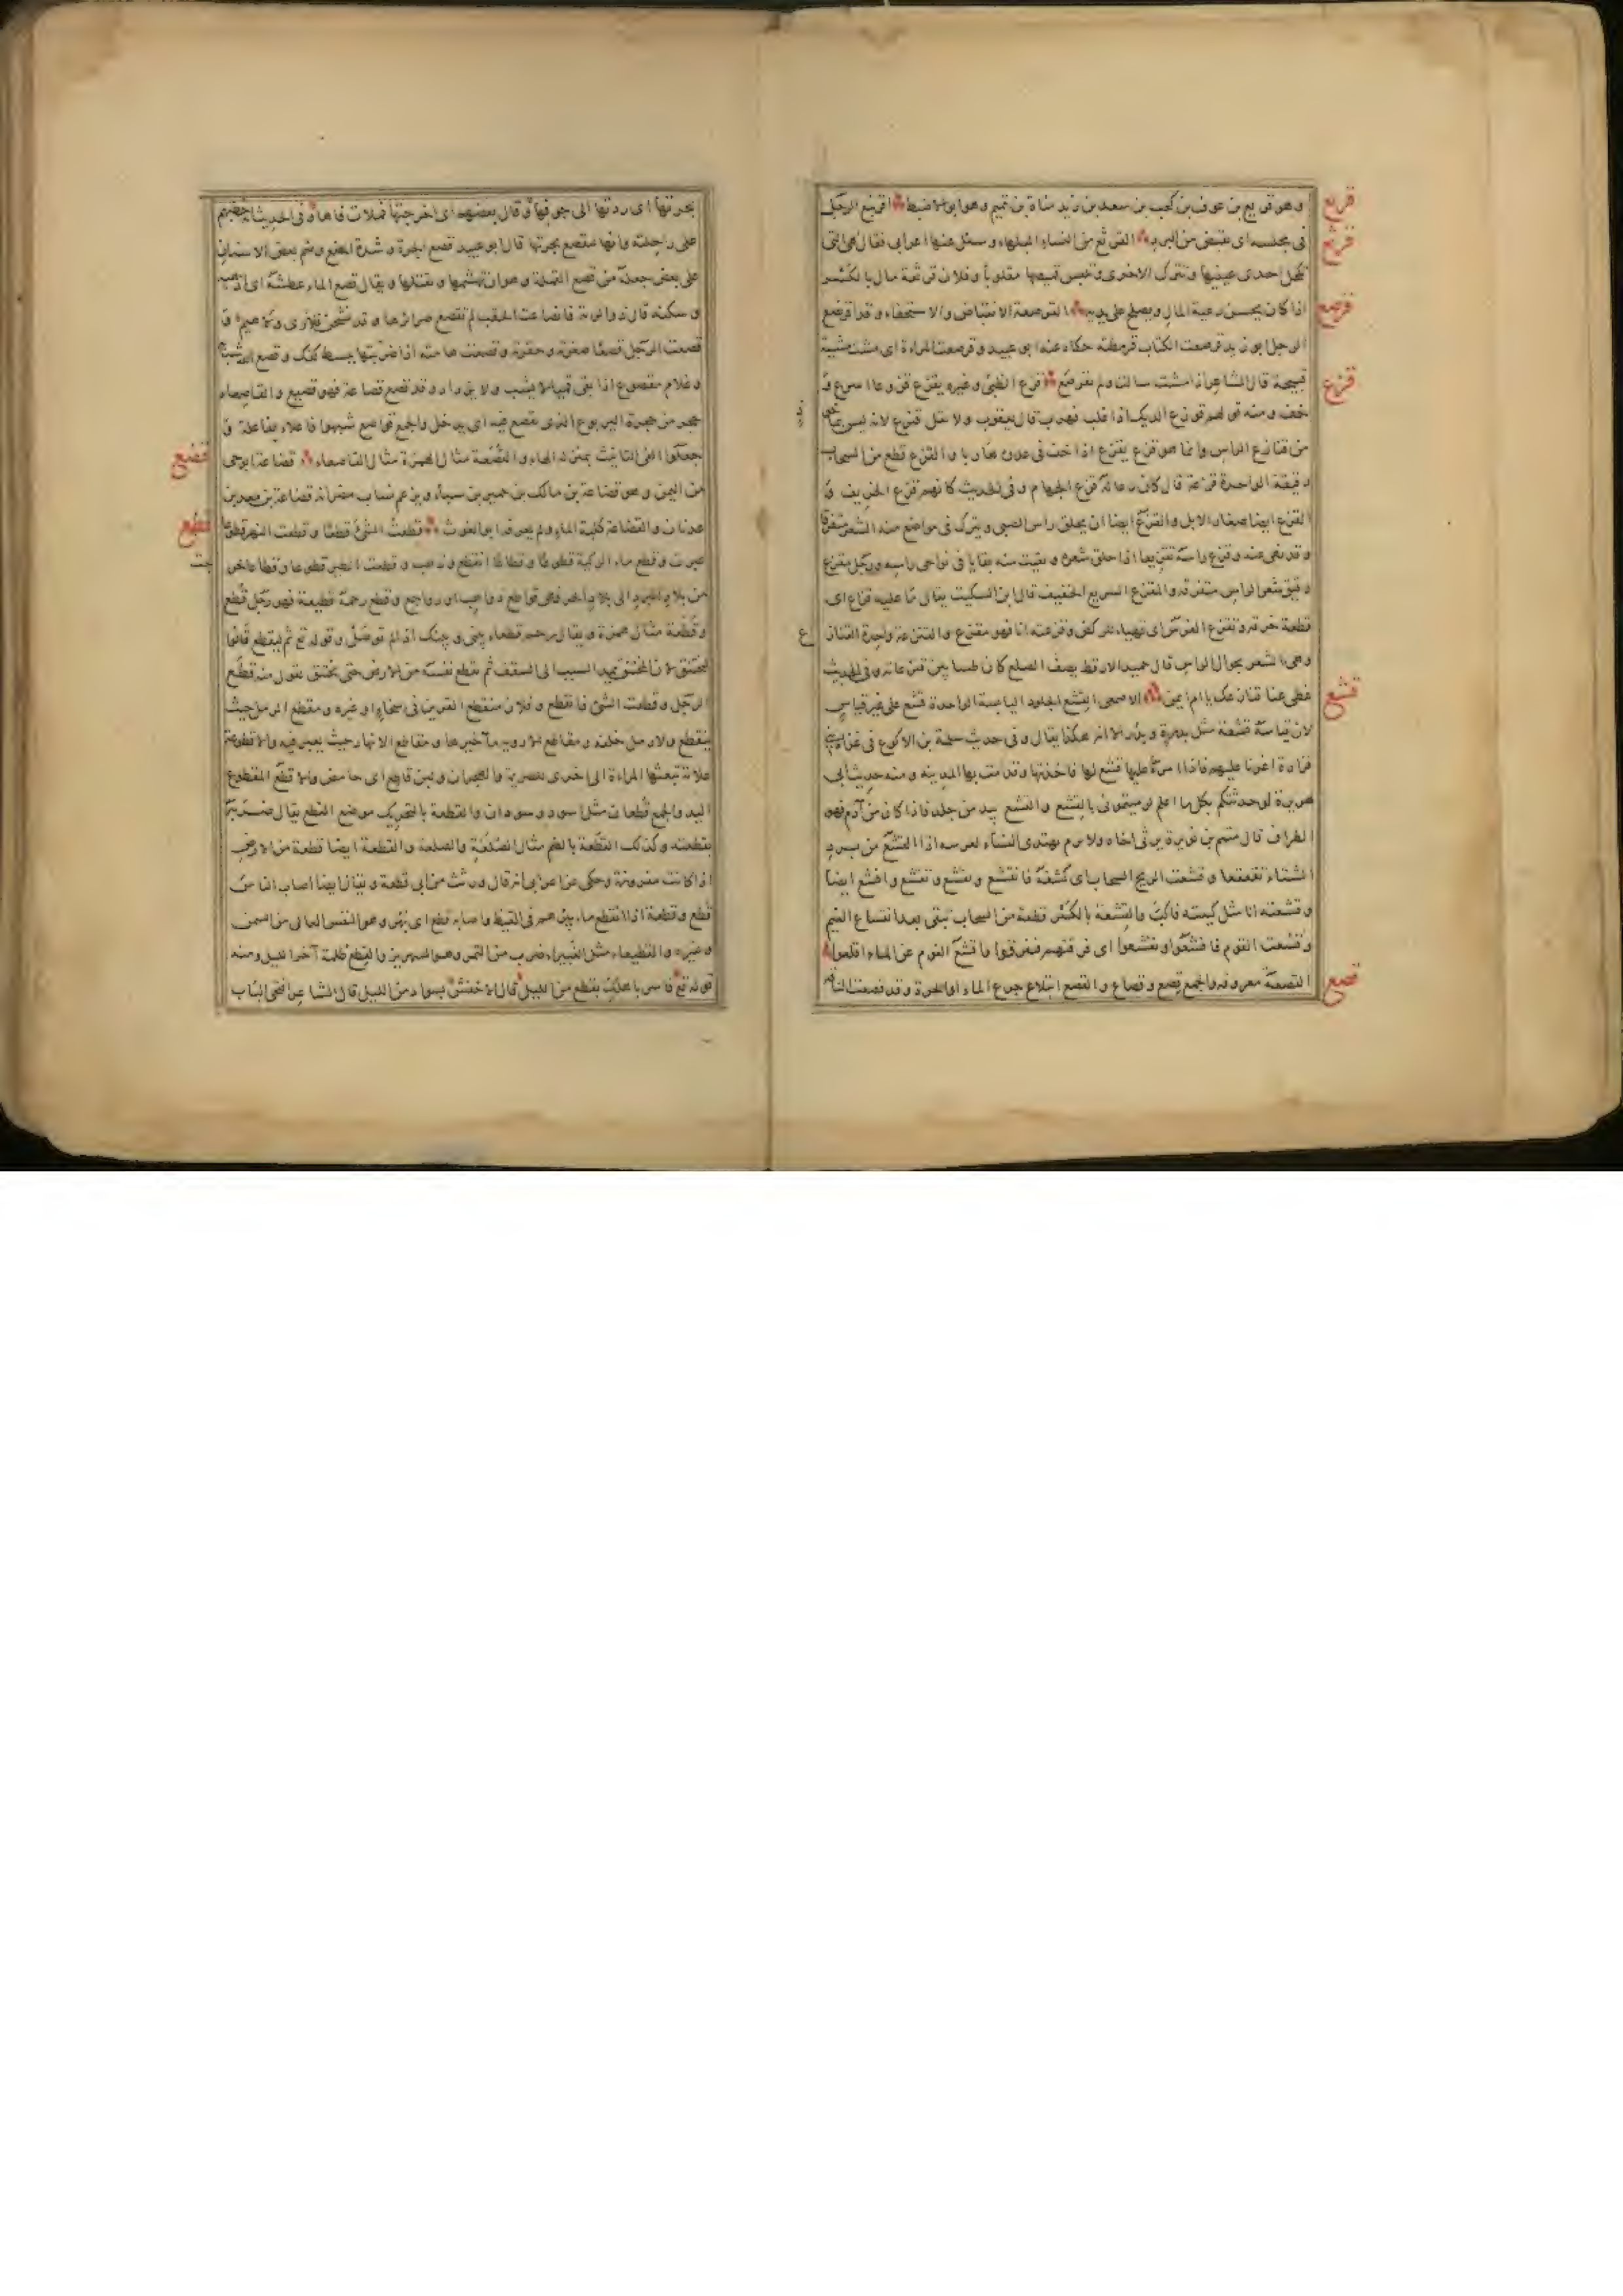 وهو قريع بن عوف بن كعب بن سعد بن زيد مناة بن تميم وهو ابو الاضبط اقرنبع الرجل
قربع
في مجلسه اى تقبض من البرد القرثع من النساء البلهاء وسئل عنها اعرابى فقال هى التى
قرثع
تكحل احدى عينيها وتترك الاخرى وتلبس قميصها مقلوبا وفلان قرثعة مال بالكسر
اذا كان يحسن رعية المال ويصلح على يديه القرصعة الانقباض والاستخفاء وقد اقرنصع
قرصع
الرجل ابو زيد قرصعت الكتاب قرمطته حكاه عنه ابو عبيد وقرصعت المراة اى مشت مشية
قبيحة قال الشاعر اذا مشت سالت ولم تقرصع قزع الظبى وغيره يقزع قزوعا اسرع و
قزع
خف ومنه قولهم قوزع الديك اذا غلب فهرب قال يعقوب ولا تقل قنزع لانه ليس
من قنازع الراس وانما هو قزع يقزع اذا خف فى عدوه هاربا والقزع قطع من السحاب
رقيقة الواحدة قزعة قال كان رعاله قزع الجهام وفى الحديث كانهم قزع الخريف و
القزع ايضا صغار الابل والقزع ايضا ان يحلق راس الصبى ويترك فى مواضع منه الشعر متفرقا
وقد نهى عنه وقزع راسه تقزيعا اذا حلق شعره وبقيت منه بقايا فى نواحى راسه ورجل مقزع
رقيق شعر الراس متفرقه والمقزع السريع الخفيف قال ابن السكيت يقال ما عليه قزاع اى
قطعة خرقة وتقزع الفرس اى تهيا للركض وقزعته انا فهو مقزع والقنزعة واحدة القنازع
ع
وهى الشعر حوال الراس قال حميد الارقط يصف الصلع كان طسا بين قنزعاته وفى الحديث
غطى عنا قنازعك يا ام ايمن الاصمعى القشع الجلود اليابسة الواحدة قشع على غير قياس
قشع
لان قياسه قشعة مثل بدرة وبدر الا انه هكذا يقال وفى حديث سلمة بن الاكوع فى غزاة بنى
فزارة اغرنا عليهم فاذا امراة عليها قشع لها فاخذتها وقدمت بها المدينة ومنه حديث ابى
هريرة لو حدثتكم بكل ما اعلم لرميتمونى بالقشع والقشع بيت من جلد فاذا كان من ادم فهو
الطراف قال متمم بن نويرة يرثى اخاه ولا برم يهدى النساء لعرسه اذا القشع من برد
الشتاء تقعقعا وقشعت الريح السحاب اى كشفته فانقشع وتقشع واقشع ايضا
وقشعته انا مثل كببته فاكب والقشعة بالكسر قطعة من السحاب تبقى بعد انقشاع الغيم
وقشعت القوم فاقشعوا وتقشعوا اى فرقتهم فتفرقوا واقشع القوم عن الماء اقلعوا
القصعة معروفة والجمع قصع وقصاع والقصع ابتلاع جرع الماء او الجرة وقد قصعت الناقة
قصع
بجرتها اى ردتها الى جوفها وقال بعضهم اى اخرجتها فملات فاها وفى الحديث انه خطبهم
على راحلته وانها لتقصع بجرتها قال ابو عبيد قصع الجرة شدة المضغ وضم بعض الاسنان
على بعض جعله من قصع القملة وهو ان يهشمها ويقتلها ويقال قصع الماء عطشه اى اذهبه
وسكنه قال ذو الرمة فانصاعت الحقب لم تقصع صرائرها وقد نشحن فلا رى ولا هيم و
قصعت الرجل قصعا صغرته وحقرته وقصعت هامته اذا ضربتها ببسط كفك وقصع الله شبابه
وغلام مقصوع اذا بقى قميا لا يشب ولا يزداد وقد قصع قصاعة فهو قصيع والقاصعاء
جحر من جحرة اليربوع الذى تقصع فيه اى يدخل والجمع قواصع شبهوا فاعلاء بفاعلة و
جعلوا الفى التانيث بمنزلة الهاء والقصعة مثال الهمزة مثال القاصعاء قضاعة ابو حى
قضع
من اليمن وهو قضاعة بن مالك بن حمير بن سبا ويزعم نساب مضر انه قضاعة بن معد بن
عدنان والقضاعة كلبة الماء ولم يعرفه ابو الغوث قطعت الشئ قطعا وقطعت النهر قطوعا
قطع
عبرت وقطع ماء الركية قطوعا وقطاعا انقطع وذهب وقطعت الطير قطوعا وقطاعا خرجت
من بلاد البرد الى بلاد الحر فهى قواطع ذواهب او رواجع وقطع رحمه قطيعة فهو رجل قطع
وقطعة مثال همزة ويقال رحم قطعاء بينى وبينك اذا لم توصل وقوله تع ثم ليقطع قالوا
ليختنق لان المختنق يمد السبب الى السقف ثم يقطع نفسه من الارض حتى يختنق تقول منه قطع
الرجل وقطعت الشئ فانقطع وفلان منقطع القرين فى سخاء او غيره ومقطع الرمل حيث
ينقطع ولا رمل خلفه ومقاطع الاودية مآخيرها ومقاطع الانهار حيث يعبر فيه والاقطوعة
علامة تبعثها المراة الى اخرى للصريمة والهجران ولبن قاطع اى حامض والاقطع المقطوع
اليد والجمع قطعان مثل اسود وسودان والقطعة بالتحريك موضع القطع يقال ضربه
بقطعته وكذلك القطعة بالضم مثال الصلعة والصلعة والقطعة ايضا قطعة من الارض
اذا كانت مفروزة وحكى عن اعرابى انه قال ورثت من ابى قطعة ويقال ايضا اصاب الناس
قطع وقطعة اذا انقطع ماء بئرهم فى القيظ واصابه قطع اى بهر وهو النفس العالى من السمن
وغيره والقطيعاء مثل الغبيراء ضرب من التمر وهو الشهريز والقطع ظلمة آخر الليل ومنه
قوله تع فاسر باهلك بقطع من الليل قال الاخفش بسواد من الليل قال الشاعر افتحى الباب